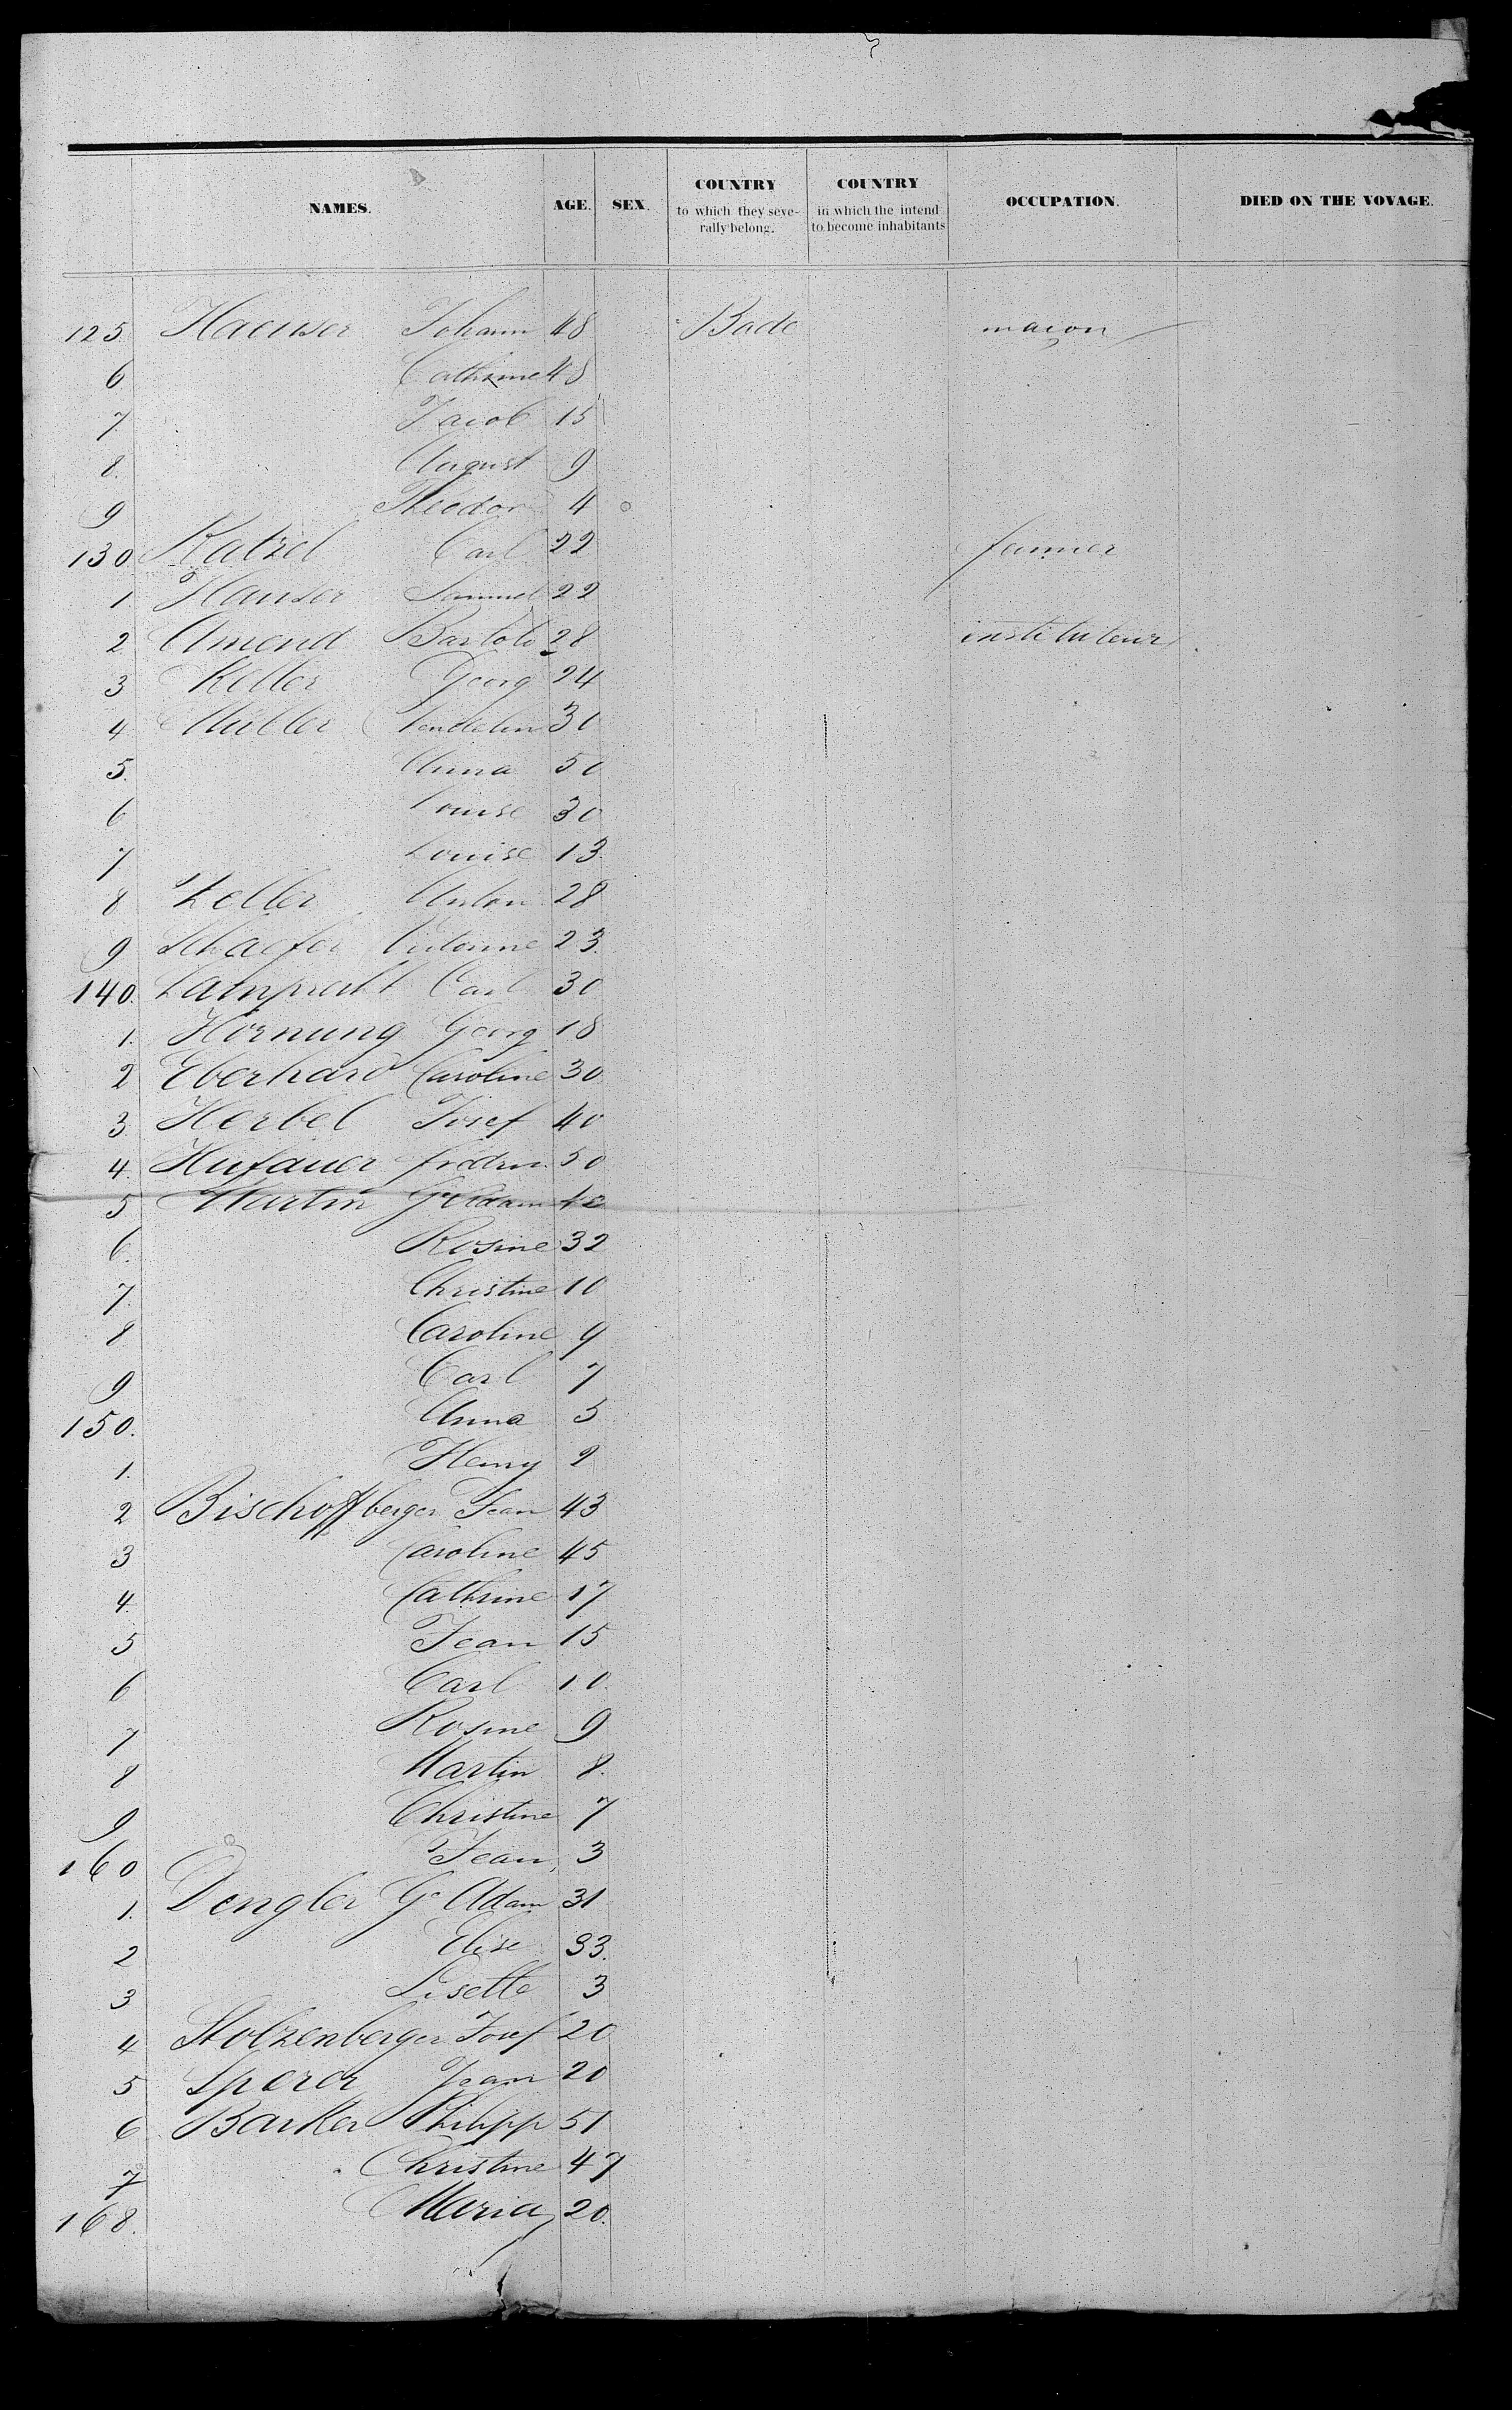 NAMES. AGE. SEX. COUNTRY to which they seve- rally belong. COUNTRY in which the intend to become inhabitants OCCUPATION. DIED ON THE VOYAGE.
125 Haeuser Johann 48 Bade maçon
6 Cathrine 48
7. Jacob 15
8. August 9
9 Theodor 4
130 Katzel Carl 22 farmer
1. Hauser Samuel 22
2 Amend Bartolo 28 instituteur
3 Keller Georg 24
4 Müller Vendelin 30
5. Anna 50
6 Louise 30
7 Louise 13
8 Zeller Anton 28
9 Schaefer 23.
140. Lamprecht Carl 30
1. Hornung Georg 18
2 Eberhard Caroline 30
3. Herbel Josef 40
4. Hufauer 50
5 Martin Ge Adam 42
6. Rosine 32
7. Christine 10
8 Caroline 9
9 Carl 7
150. Anna 5
1. Henry 2
2 Bischoffberger Jean 43
3 Caroline 45
4. Cathrine 17
5 Jean 15
6 Carl 10.
7 Rosine 9
8 Martin 8.
9 Christine 7
160 Jean 3
1. Dengler Ge Adam 31
2 Elise 33.
3 Lisette 3
4 Stolzenberger Josef 20
5 Sperer Jean 20
6 Barker Philipp 51
7 Christine 47
168. Maria 20.